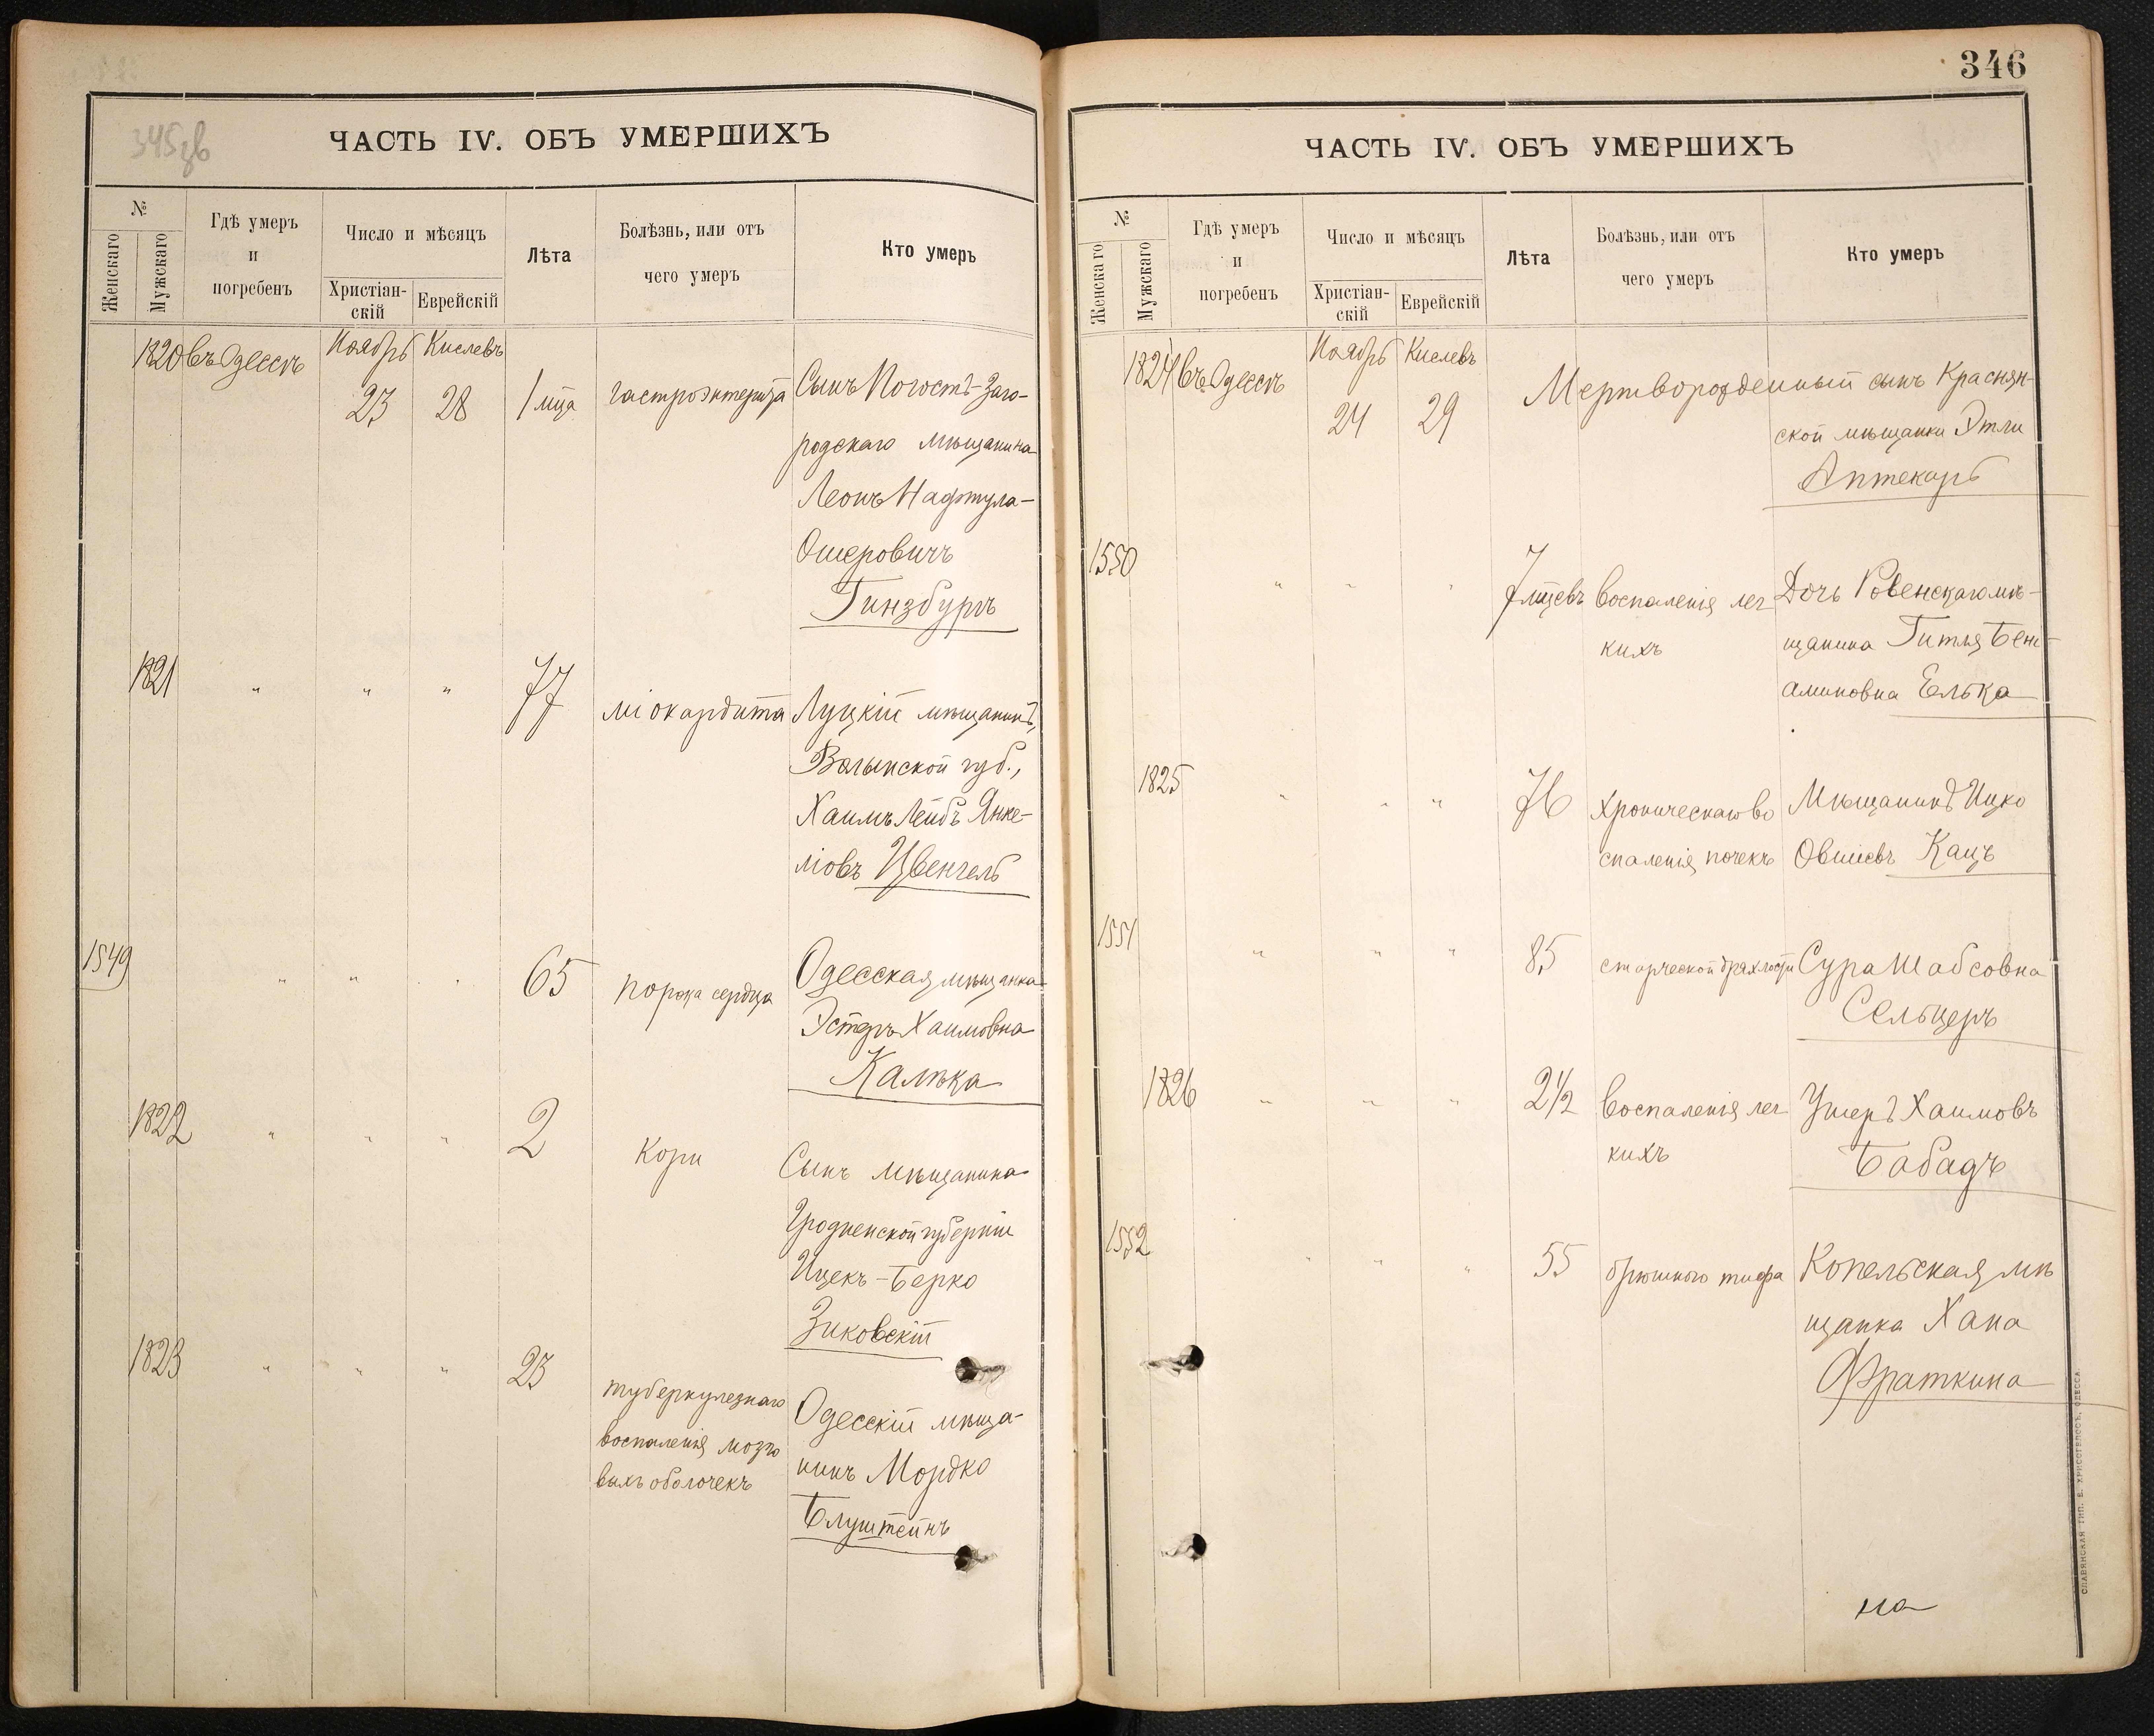 345 зв
ЧАСТЬ IV. ОБЪ УМЕРШИХЪ
№
Женскаго
Мужскаго
Гдѣ умеръ
и
погребенъ
Число и мѣсяцъ
Христіан-
скій
Еврейскій
Лѣта
Болѣзнь, или отъ
чего умеръ
Кто умеръ
1820 въ Одессѣ Ноябрь Кислевъ
23 28 1 мца гастроэнтерита Сынъ Погостъ-Заго-
родскаго мѣщанина
Леонъ Нафтула-
Ошеровичъ
Гинзбургъ
1821 " " " 77 міокардита Луцкій мѣщанинъ,
Волынской губ.,
Хаимъ Лейбъ Янке-
ліовъ Цвенгель
1549 " " " 65 порока сердца Одесская мѣщанка
Эстеръ Хаимовна
Калѣка
1822 " " " 2 кори Сынъ мѣщанина
Гродненской губерніи
Ицекъ-Берко
Зиковскій
1823 " " " 23 туберкулезнаго
воспаленія мозго
выхъ оболочекъ
Одесскій мѣща-
нинъ Мордко
Блуштейнъ
346
ЧАСТЬ IV. ОБЪ УМЕРШИХЪ
№
Женскаго
Мужскаго
Гдѣ умеръ
и
погребенъ
Число и мѣсяцъ
Христіан-
скій
Еврейскій
Лѣта
Болѣзнь, или отъ
чего умеръ
Кто умеръ
1824 въ Одессѣ Ноябрь Кислевъ
24 29 Мертворожденный сынъ Краснян-
ской мѣщанки Этли
Аптекарь
1550 " " " 7 мцевъ воспаленія лег Дочь Ровенскаго мѣ-
кихъ щанина Гитля Бені-
аминовна Елька
1825 " " " 76 хроническаго во Мѣщанинъ Ицко
спаленія почекъ Овшіевъ Кацъ
1551 " " " 85 старческой дряхлости Сура Шабсовна
Сельцеръ
1826 " " " 2½ воспаленія лег Ушеръ Хаимовъ
кихъ Бабадъ
1552 " " " 55 брюшного тифа Копельская мѣ
щанка Хана
Фраткина
на
СЛАВЯНСКАЯ ТИП. Е. ХРИСОГЕЛОСЪ, ОДЕССА